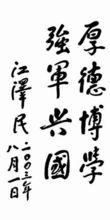 厚德博學
強軍兴國
江澤民
二〇〇三年
八月一日